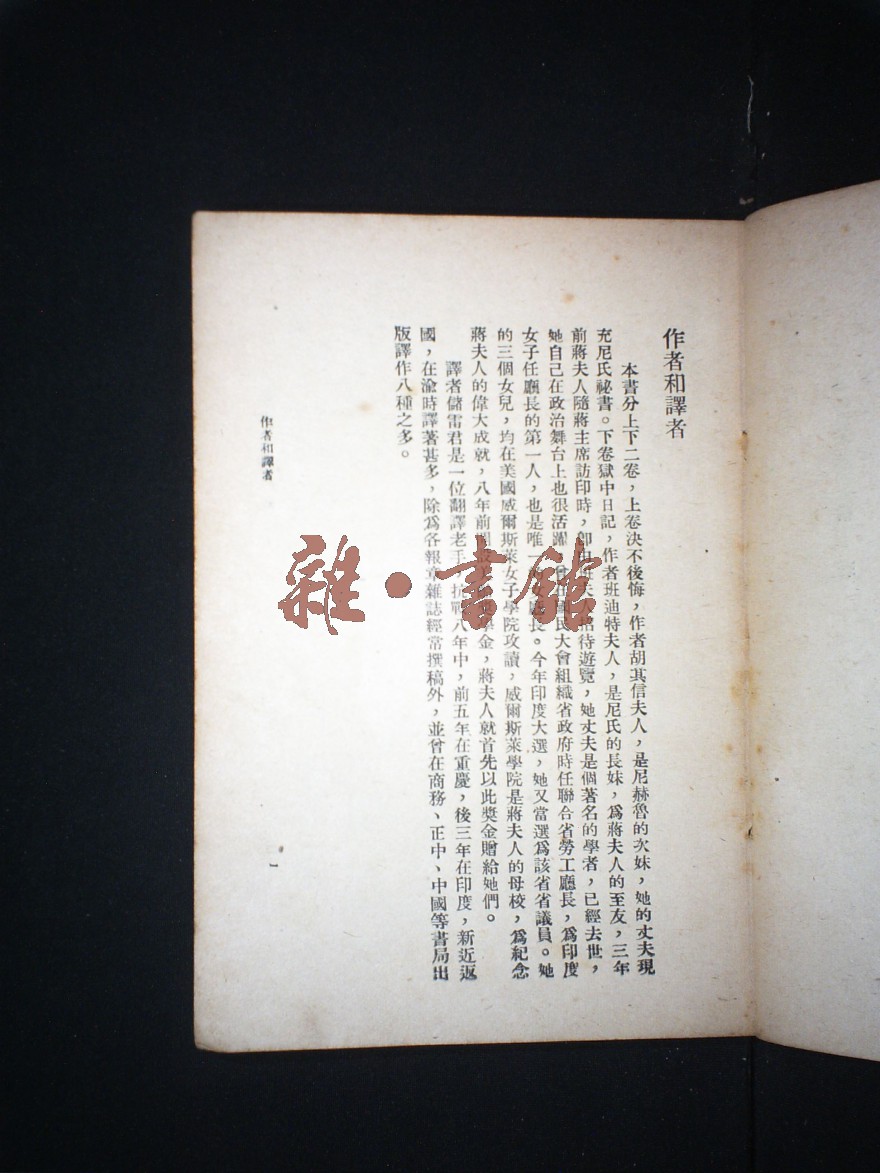 作者和譯者
本書分上下二卷，上卷決不後悔，作者胡其信夫人，是尼赫魯的次妹，她的丈夫現
充尼氏祕書。下卷獄中日記，作者班迪特夫人，是尼氏的長妹，爲蔣夫人的至友，三年
前蔣夫人隨蔣主席訪印時，卽由班夫人招待遊覽，她丈夫是個著名的學者，已經去世，
她自己在政治舞台上也很活躍，國民大會組織省政府時任聯合省勞工廳長，爲印度
女子任廳長的第一人，也是唯一女廳長。今年印度大選，她又當選爲該省省議員。她
的三個女兒，均在美國威爾斯萊女子學院攻讀，威爾斯萊學院是蔣夫人的母校，爲紀念
蔣夫人的偉大成就，八年前學金，蔣夫人就首先以此獎金贈給她們。
譯者儲雷君是一位翻譯老手，抗戰八年中，前五年在重慶，後三年在印度，新近返
國，在渝時譯著甚多，除爲各報章雜誌經常撰稿外，並曾在商務、正中、中國等書局出
版譯作八種之多。
作者和譯者
一
雜·書館